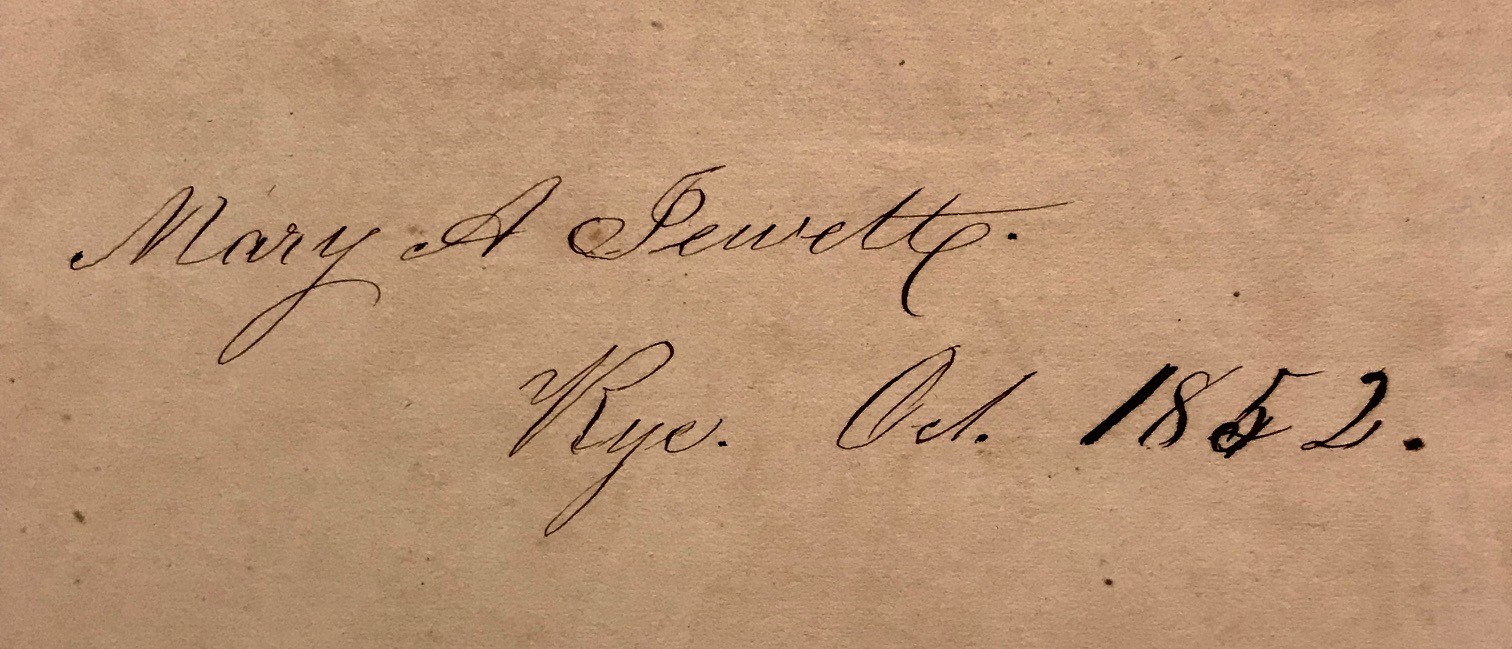 Mary A Jewett.
Rye. Oct. 1852.